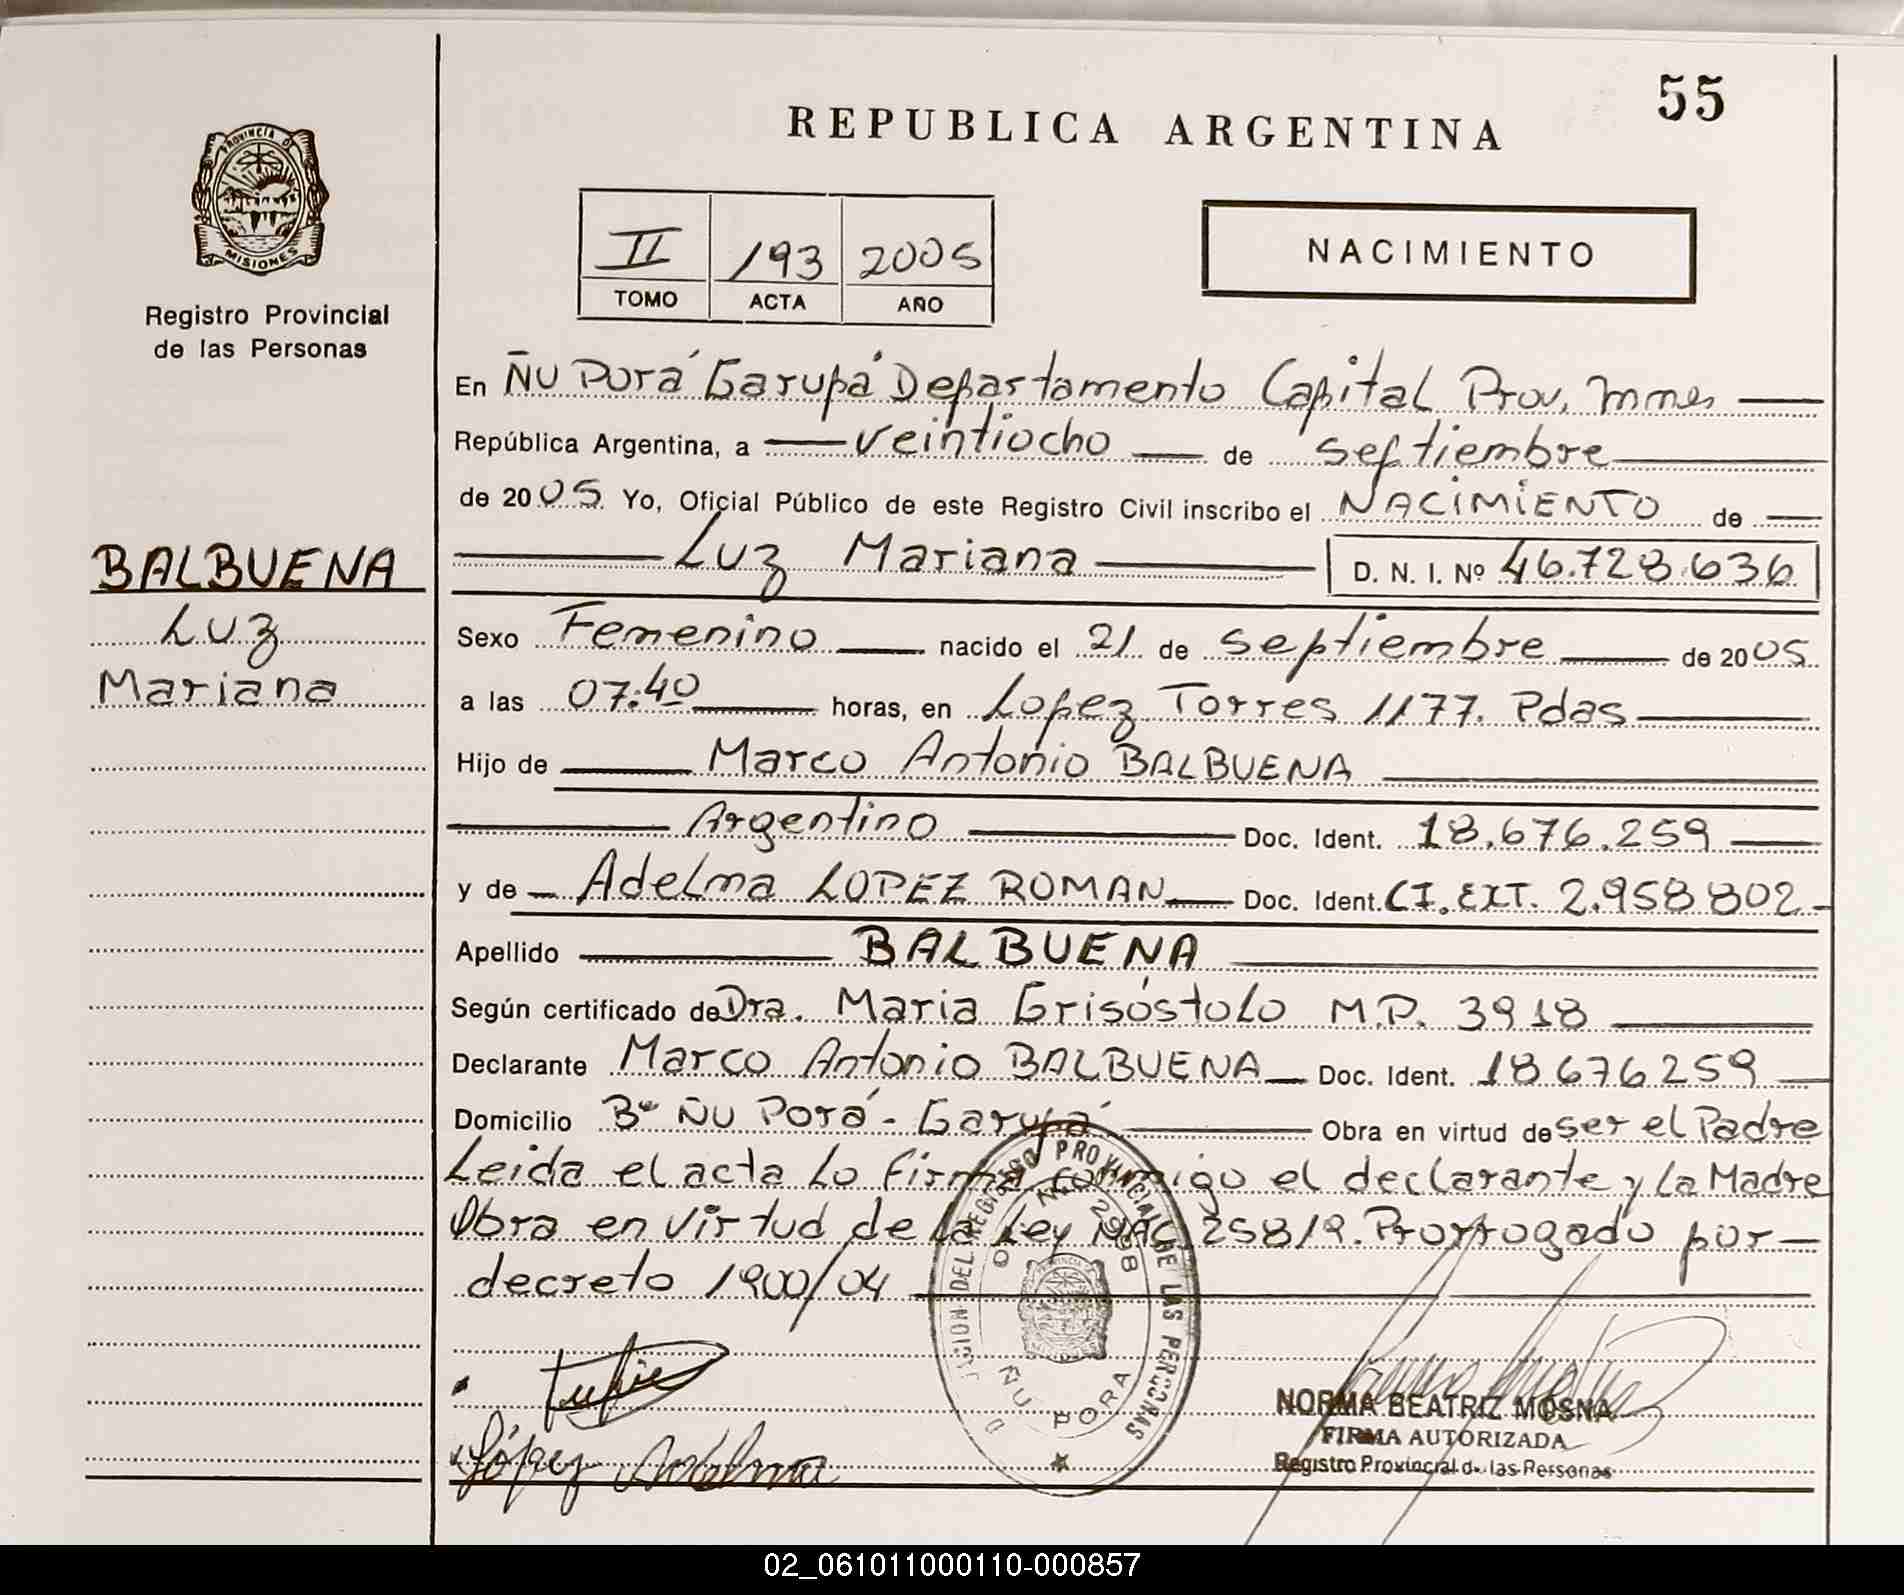 55
REPUBLICA ARGENTINA
PROVINCIA DE
MISIONES
Registro Provincial
de las Personas
II 193 2005
TOMO ACTA AÑO
NACIMIENTO
En Ñu Porá Garupá Departamento Capital Prov. Mnes
República Argentina, a veintiocho de septiembre
de 2005 Yo, Oficial Público de este Registro Civil inscribo el NACIMIENTO de
BALBUENA
Luz
Mariana
Luz Mariana D. N. I. Nº 46.728.636
Sexo Femenino nacido el 21 de septiembre de 2005
a las 07:40 horas, en Lopez Torres 1177. Pdas
Hijo de Marco Antonio BALBUENA
Argentino Doc. Ident. 18.676.259
y de Adelma LOPEZ ROMAN Doc. Ident. CI. EXT. 2.958802
Apellido BALBUENA
Según certificado de Dra. Maria Grisóstolo M.P. 3918
Declarante Marco Antonio BALBUENA Doc. Ident. 18676259
Domicilio Bº Ñu Porá - Garupá Obra en virtud de ser el Padre
Leida el acta lo firma conmigo el declarante y la Madre
Obra en virtud de la Ley NAC. 25819. Prorrogado por
decreto 1900/04
DEL REGISTRO PROVINCIAL DE LAS PERSONAS
ÑU PORA
López Adelma
NORMA BEATRIZ MOSNA
FIRMA AUTORIZADA
Registro Provincial de las Personas
02_061011000110-000857